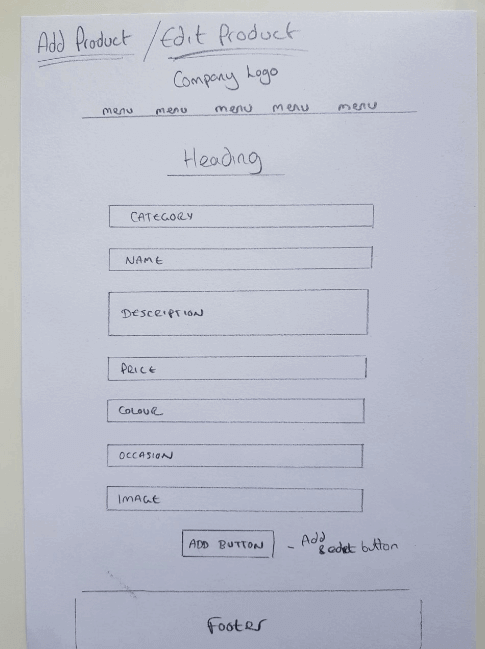 Add Product / Edit Product
Company Logo
menu menu menu menu menu
Heading
CATEGORY
NAME
DESCRIPTION
PRICE
COLOUR
OCCASION
IMAGE
ADD BUTTON - Add
& edit button
Footer